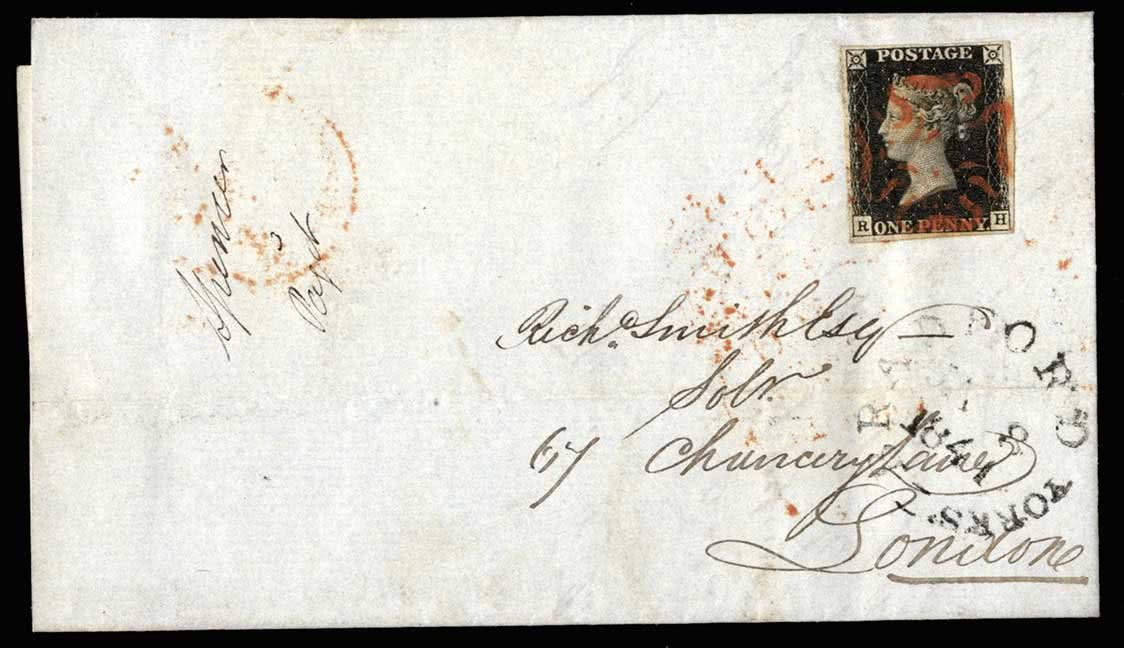 POSTAGE
R ONE PENNY H
Spencer
Richd. Smith Esq
Solr.
67 Chancery Lane
London
BRADFORD YORKS.
1841